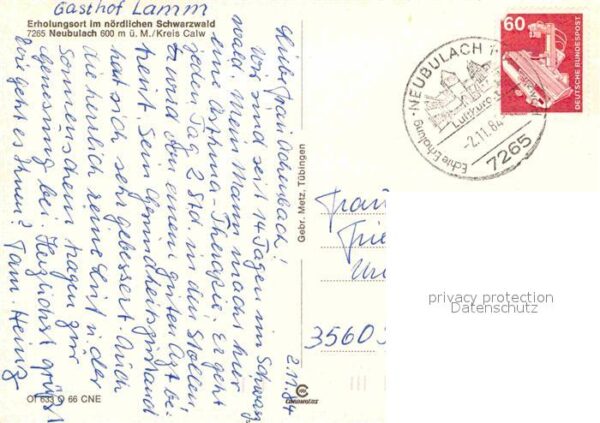 Gasthof Lamm
Erholungsort im nördlichen Schwarzwald
7265 Neubulach 600 m ü. M./Kreis Calw
2.11.84
Liebe Frau Achenbach!
Wir sind seit 14 Tagen im Schwarz
wald. Mein Mann macht hier
eine Asthma-Therapie. Er geht
jeden Tag 2 Std. in den Stollen
u wird von einem guten Arzt be-
treut. Sein Gesundheitszustand
hat sich sehr gebessert. Auch
die herrlich reine Luft u der
Sonnenschein tragen zur
Genesung bei. Herzlichst grüßt
Wie geht es Ihnen? Fam. Heinz
OI 633 O 66 CNE
Gebr. Metz, Tübingen
60
DEUTSCHE BUNDESPOST
NEUBULACH 1
Luftkurort
-2.11.84
Echte Erholung
7265
Frau
Frie
3560
privacy protection
Datenschutz